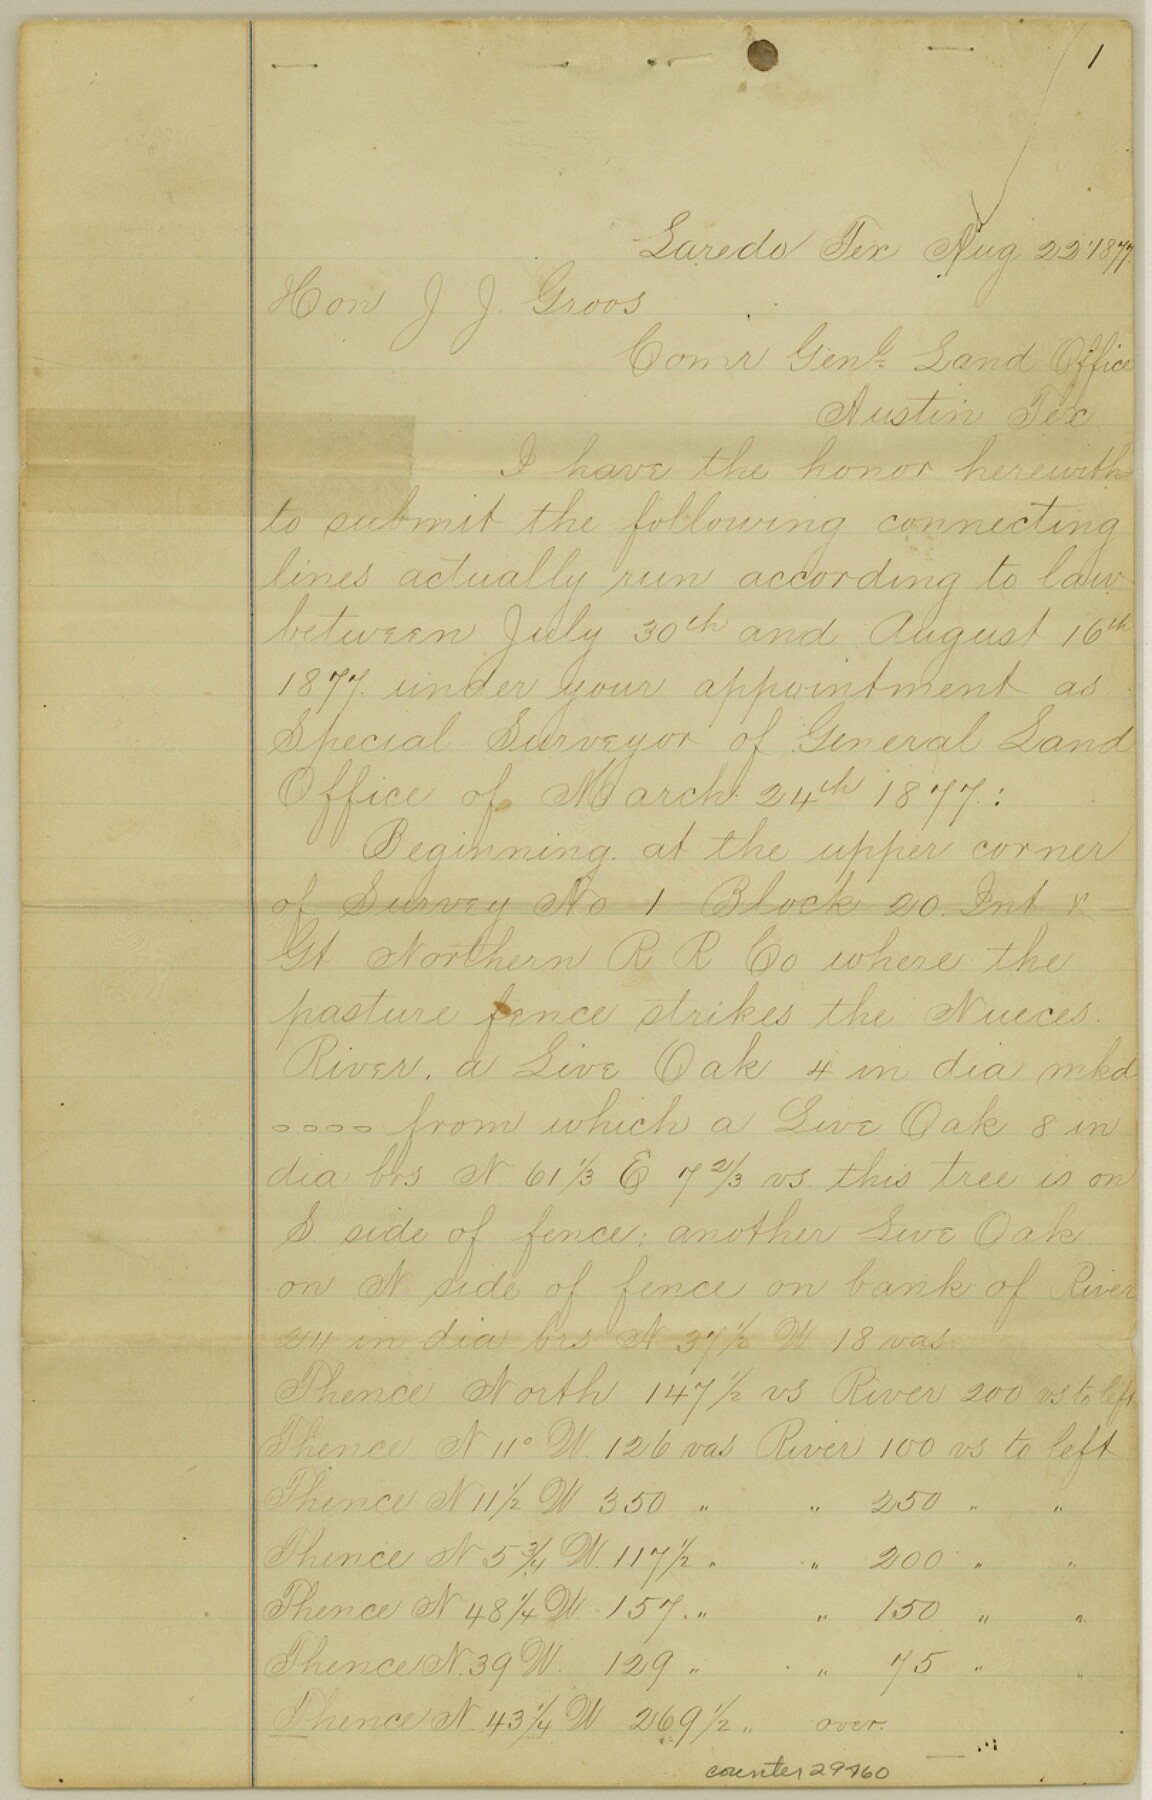 1
Laredo Tex Aug 22 1877.
Hon J. J. Groos
Comr Genl Land Office
Austin Tex
I have the honor herewith
to submit the following connecting
lines actually run according to law
between July 30th and August 16th
1877 under your appointment as
Special Surveyor of General Land
Office of March 24th 1877:
Beginning at the upper corner
of Survey No 1 Block 20. Int &
Gt Northern R R Co where the
pasture fence strikes the Nueces
River. a Live Oak 4 in dia mkd
from which a Live Oak 8 in
dia brs N 61 1/3 E 7 2/3 vs this tree is on
S side of fence; another Live Oak
on N side of fence on bank of River
24 in dia brs N 37 1/2 W 18 vas.
Thence North 147 1/2 vs River 200 vs to left
Thence N 11° W. 126 vas River 100 vs to left
Thence N 11 1/2 W 350 " " 250 " "
Thence N 5 3/4 W. 117 1/2 " " 200 " "
Thence N 48 1/4 W. 157 " " 150 " "
Thence N. 39 W. 129 " " 75 " "
Thence N. 43 1/4 W 269 1/2 " over.
counter 29760